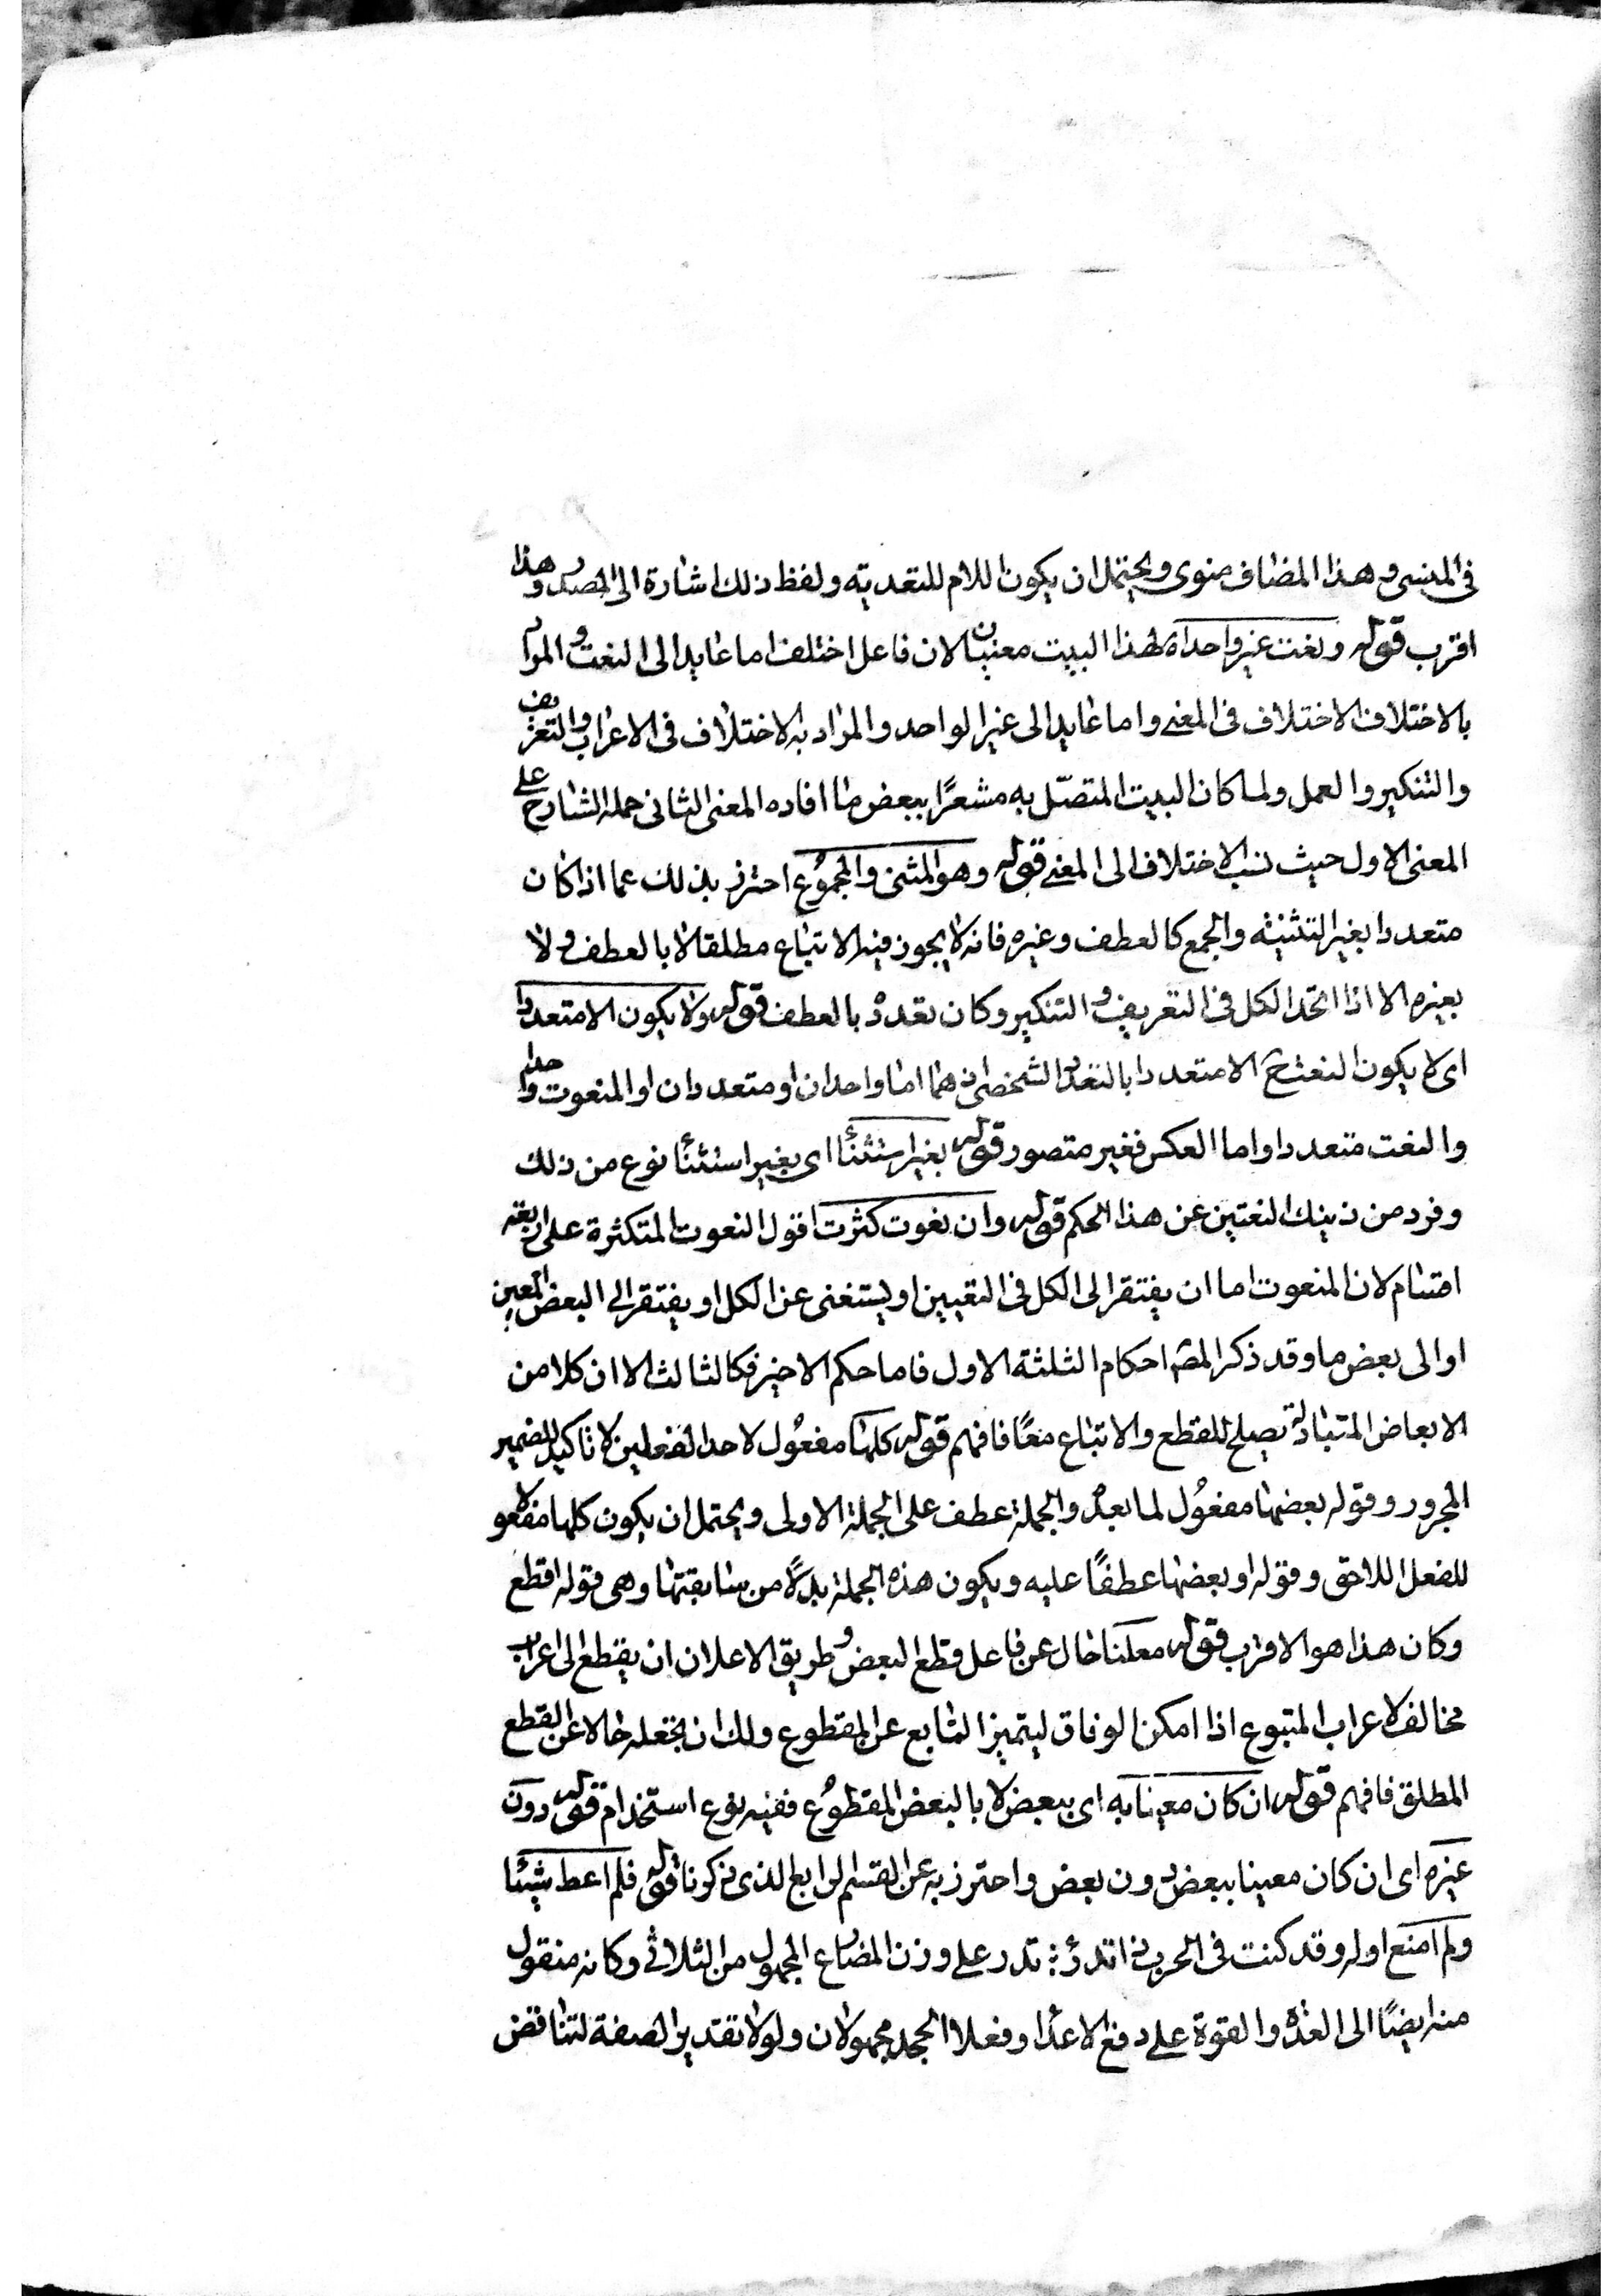 في المنسي وهذا المضاف منوى ويحتمل ان يكون اللام للتعديته ولفظ ذلك اشارة الى المصدر وهذا
اقرب قوله ونعت غير واحد اه لهذا البيت معنيان لان فاعل اختلف اما عايد الى النعت والمراد
بالاختلاف الاختلاف في المعنى واما عايد الى غير الواحد والمراد به الاختلاف في الاعراب والتعريف
والتنكير والعمل ولما كان البيت المتصل به مشعرًا ببعض ما افاده المعنى الثاني حمله الشارح على
المعنى الاول حيث نسب الاختلاف الى المعنى قوله وهو المثنى والمجموع احترز بذلك عما اذا كان
متعددا بغير التثنيته والجمع كالعطف وغيره فانه لا يجوز فيه الاتباع مطلقا لا بالعطف ولا
بغيره الا اذا اتحد الكل في التعريف والتنكير وكان تعدده بالعطف قوله ولا يكون الا متعددا
اى لا يكون النعت ح الا متعددا بالتعدد الشخصى اذ هما اما واحدان او متعددان او المنعوت واحدا
والنعت متعددا واما العكس فغير متصور قوله بغير استثنا اى بغير استثنا نوع من ذلك
وفرد من ذينك النعتين عن هذا الحكم قوله وان نعوت كثرت اقول النعوت المتكثرة على اربعته
اقسام لان المنعوت اما ان يفتقر الى الكل في التعيين او يستغنى عن الكل او يفتقر الى البعض المعين
او الى بعض ما وقد ذكر المص احكام الثلثة الاول فاما حكم الاخير فكالثالث الا ان كلا من
الابعاض المتبادلة يصلح للقطع والاتباع معًا فافهم قوله كلها مفعول لاحد الفعلين لا تاكيد للضمير
المجرور وقوله بعضها مفعول لما بعده والجملة عطف على الجملة الاولى ويحتمل ان يكون كلها مفعولا
للفعل اللاحق وقوله او بعضها عطفًا عليه ويكون هذه الجملة بدلًا من سابقتها وهى قوله اقطع
وكان هذا هو الاقرب قوله معلنا حال عن فاعل قطع البعض وطريق الاعلان ان يقطع الى اعراب
مخالف لاعراب المتبوع اذا امكن الوفاق ليتميز التابع عن المقطوع ولك ان تجعله حالا عن القطع
المطلق فافهم قوله ان كان معينا به اى ببعض لا بالبعض المقطوع ففيه نوع استخدام قوله دون
غيره اى ان كان معينا ببعض دون بعض واحترز به عن القسم الرابع الذى ذكرنا قوله فلم اعط شيئا
ولم امنع اوله وقد كنت في الحرب ذا تدرؤ؛ تدر على وزن المضارع المجهول من الثلاثى وكانه منقول
منه ايضًا الى العدة والقوة على دفع الاعدا وفعلا الجحد مجهولان ولولا تقدير الصفة لتناقض